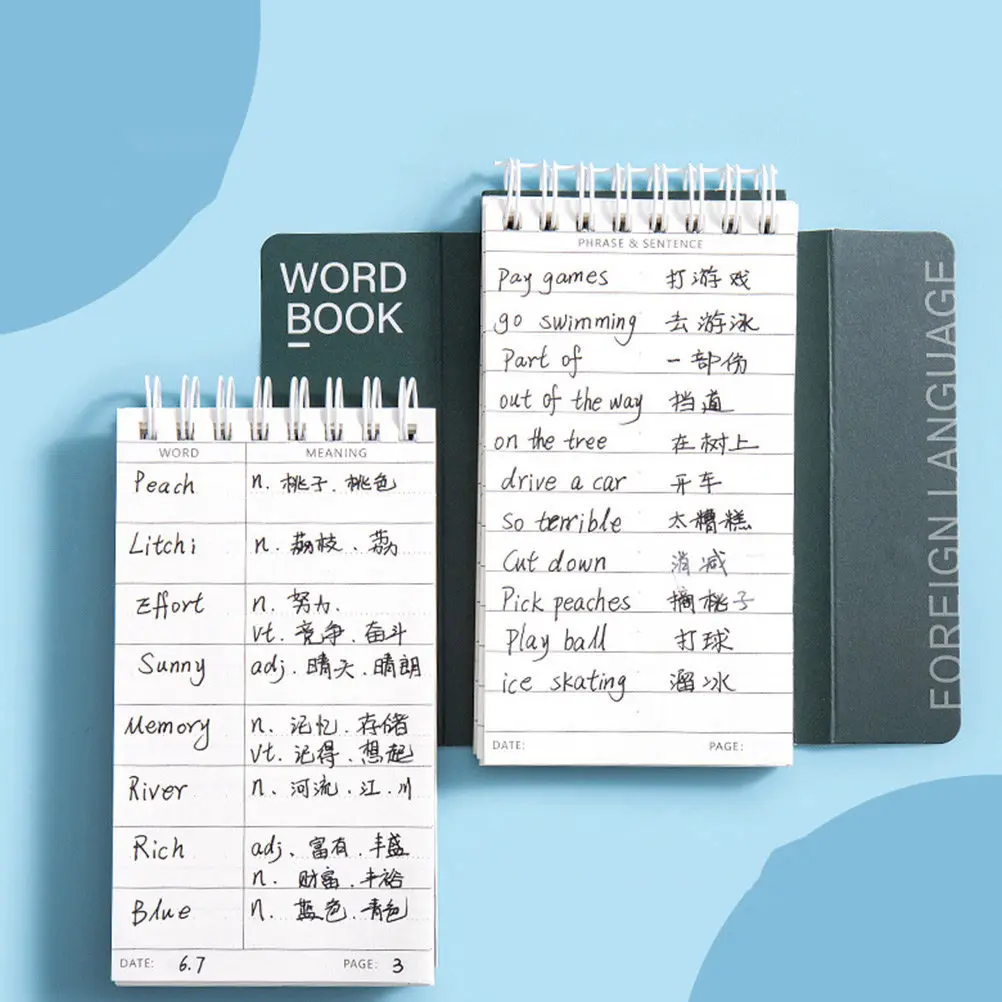 WORD
BOOK
PHRASE & SENTENCE
Pay games 打游戏
go swimming 去游泳
Part of 一部伤
out of the way 挡道
on the tree 在树上
drive a car 开车
so terrible 太糟糕
Cut down 消减
Pick peaches 摘桃子
Play ball 打球
ice skating 溜冰
DATE: PAGE:
FOREIGN LANGUAGE
WORD MEANING
Peach n. 桃子、桃色
Litchi n. 荔枝、荔
Effort n. 努力.
vt. 竞争、奋斗
Sunny adj. 晴天、晴朗
Memory n. 记忆、存储
vt. 记得、想起
River n. 河流、江、川
Rich adj、富有、丰盛
n. 财富、丰裕
Blue n. 蓝色、青色
DATE: 6.7 PAGE: 3